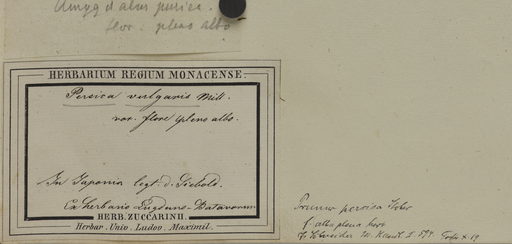 Amygdalus persica.
flor. pleno albo
HERBARIUM REGIUM MONACENSE
Persica vulgaris Mill.
var. flore pleno albo.
In Japonia legt. d. Siebold.
Ex herbario Lugduno-Batavorum
HERB. ZUCCARINII.
Herbar. Univ. Ludov. Maximil.
Prunus persica
f. alba plena
Schneider I. 594